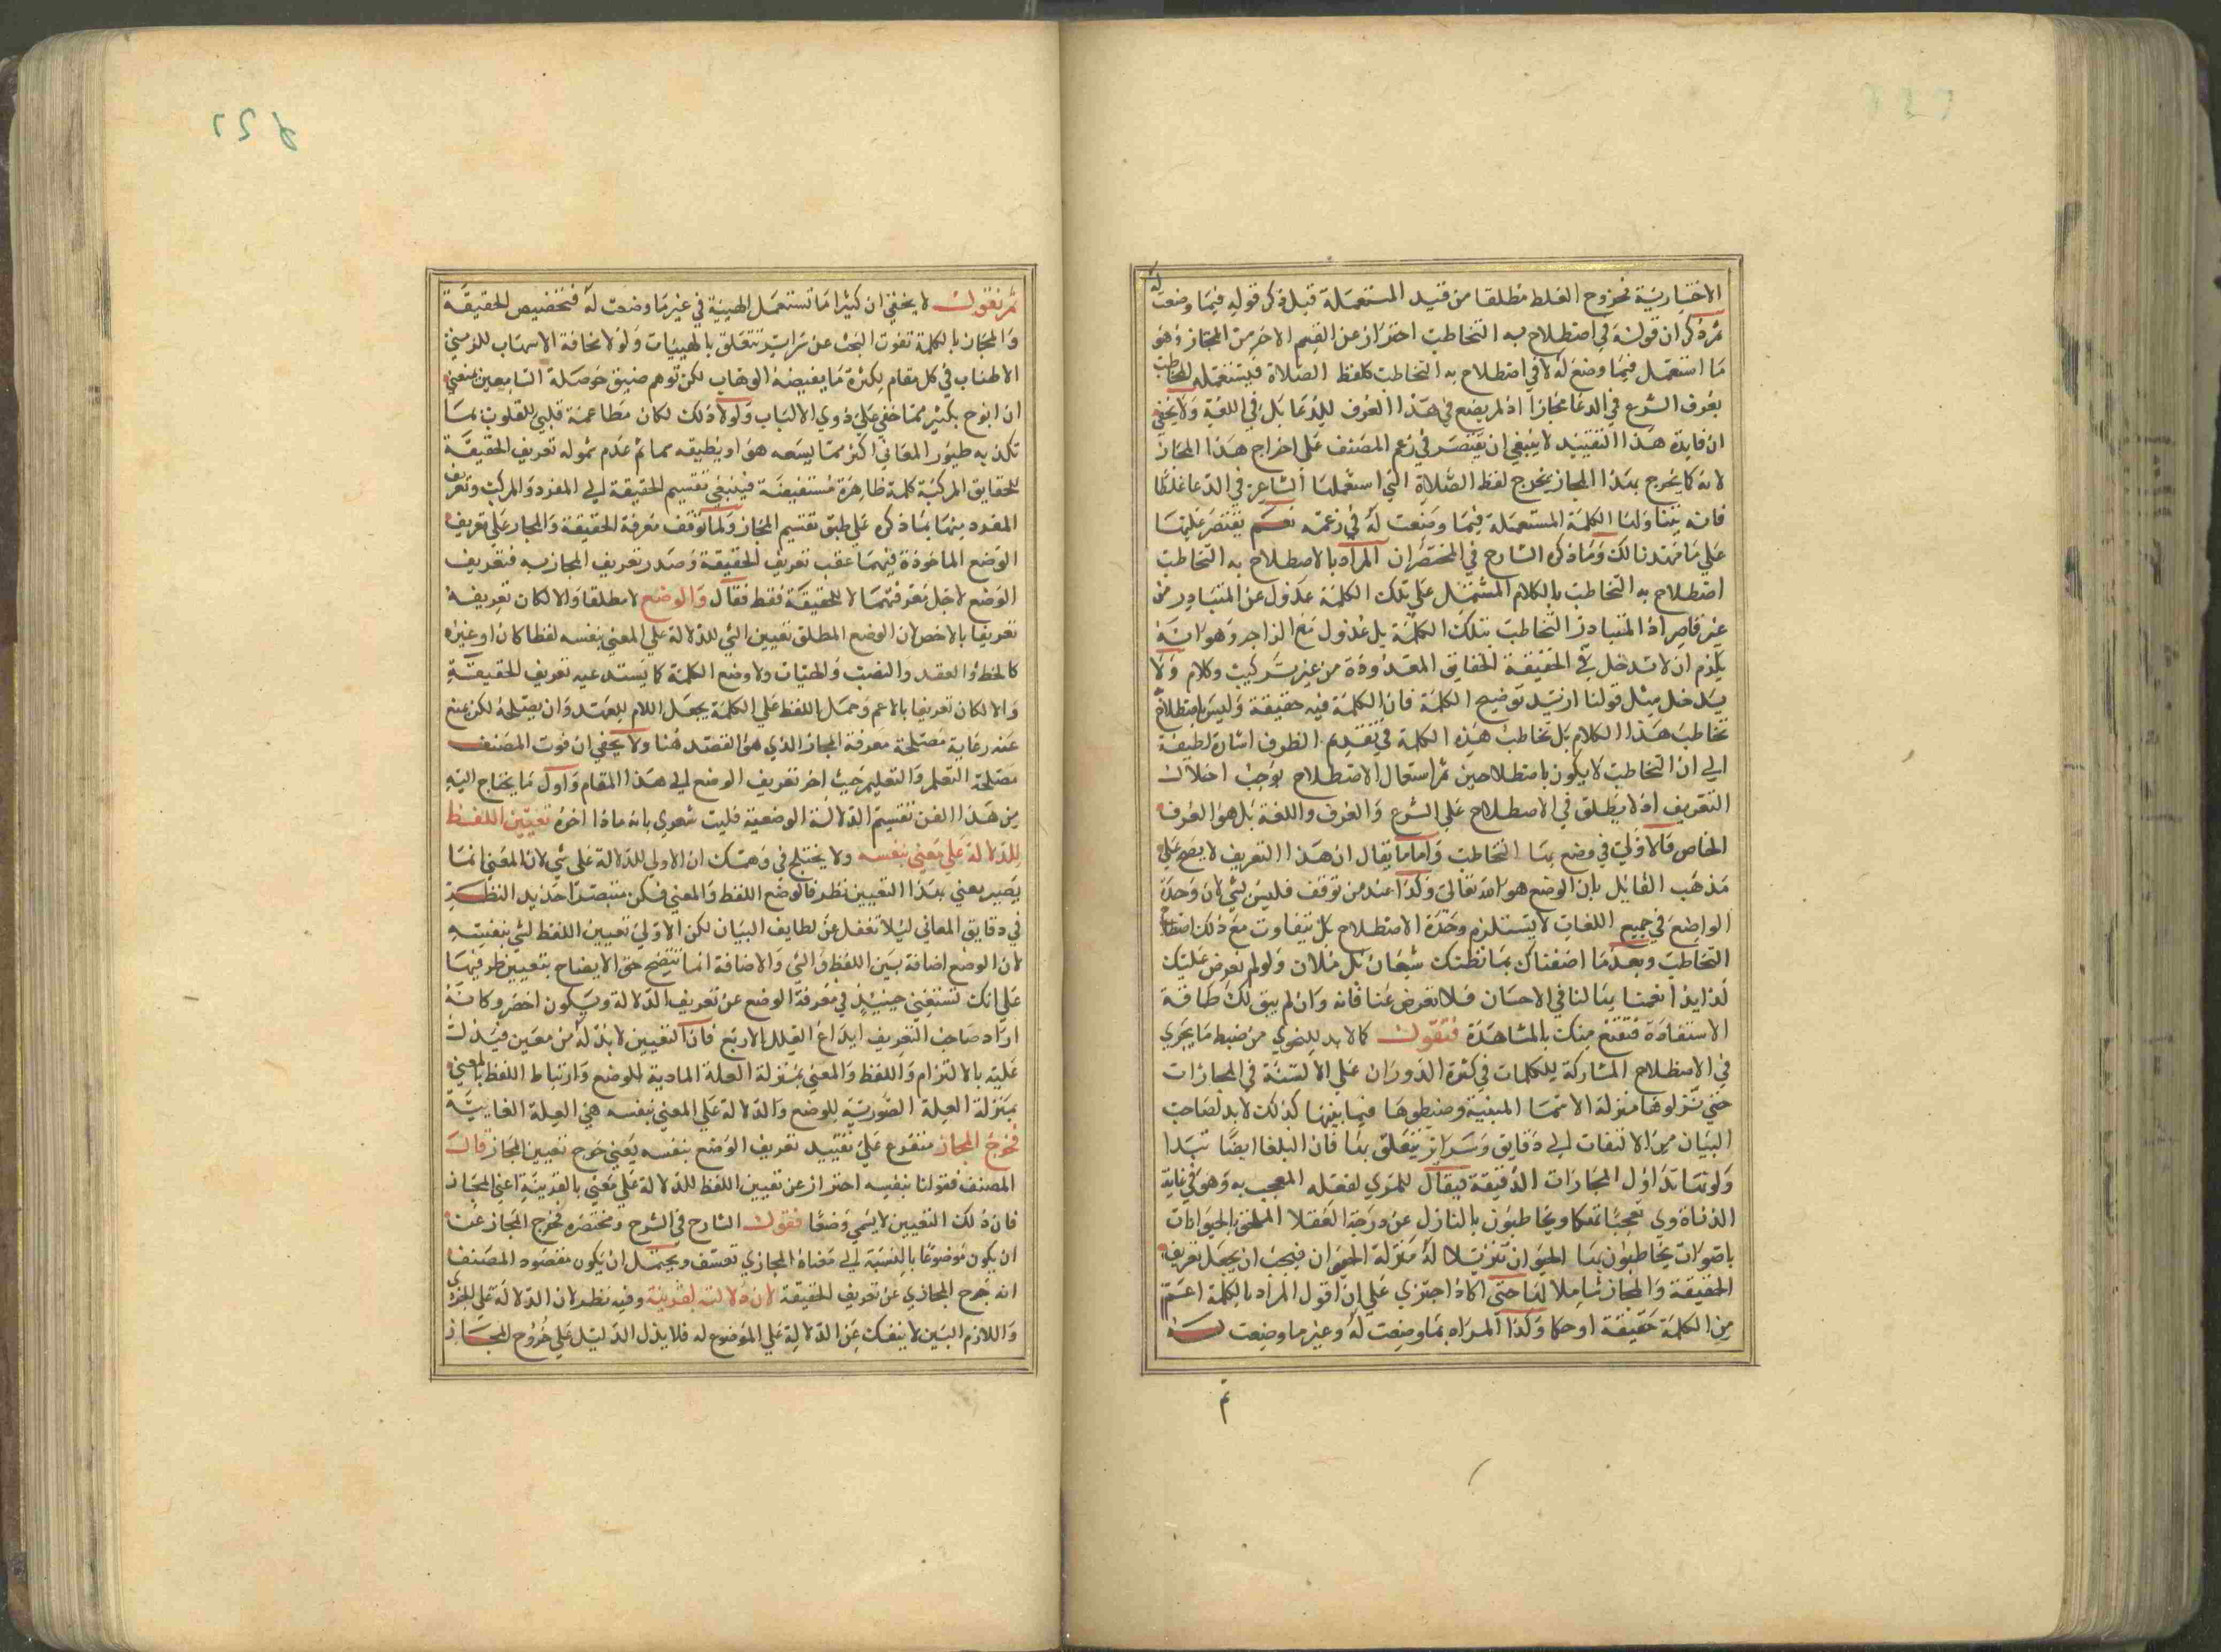 الاختيارية فخروج الغلط مطلقا من قيد المستعملة قبل ذكر قوله فيما وضعت له
ثم ذكر ان قوله في اصطلاح به التخاطب احتراز عن القسم الاخر من المجاز وهو
ما استعمل فيما وضع له لا في اصطلاح به التخاطب كلفظ الصلاة فيستعمله المخاطب
بعرف الشرع في الدعا مجازا اذ لم يضع في هذا العرف للدعا بل في اللغة ولا يخفي
ان فايدة هذا التقييد لا ينبغي ان يقتصر في زعم المصنف علي اخراج هذا المجاز
لانه كما يخرج بهذا المجاز يخرج لفظ الصلاة التي استعملها الشاعر في الدعا غلطا
فانه يتناولها الكلمة المستعملة فيما وضعت له في زعمه نعم يقتصر عليها
علي ما مهدنا لك وما ذكره الشارح في المختصر ان المراد بالاصطلاح به التخاطب
اصطلاح به التخاطب بالكلام المشتمل علي تلك الكلمة عدول عن المتبادر من
غير قاصر اذ المتبادر التخاطب بتلك الكلمة بل عدول مع الزاجر وهو انه
يلزم ان لا تدخل في الحقيقة الحقايق المعدودة من غير تركيب وكلام ولا
يدخل مثل قولنا اريد توضيح الكلمة فان الكلمة فيه حقيقة وليس باصطلاح
تخاطب هذا الكلام بل تخاطب هذه الكلمة في تقديم الظرف اشارة لطيفة
الي ان التخاطب لا يكون باصطلاحين ثم استعمال الاصطلاح يوجب اخلال
التعريف اذ لا يطلق في الاصطلاح علي الشرع والعرف واللغة بل هو العرف
الخاص فالاولي في وضع بها التخاطب واما ما يقال ان هذا التعريف لا يصح علي
مذهب القايل بان الوضع هو الله تعالي وكذا عند من توقف فليس لشي لان وحدة
الواضع في جميع اللغات لا يستلزم وحدة الاصطلاح بل يتفاوت مع ذلك اصطلاح
التخاطب وبعد ما اضفناك بما نظنك شبعان بل ملان ولو لم نعرض عليك
لذايذ انعمنا بها لنا في الاحسان فلا تعرض عنا فانه وان لم يبق لك طاقة
الاستفادة فنقنع منك بالمشاهدة فنقول كما لا بد للنحوي من ضبط ما يجري
في الاصطلاح المشاركة للكلمات في كثرة الدوران علي الالسنة في المجازات
حتي نزلوها منزلة الاسما المبنية وضبطوها فيما بينها كذلك لا بد لصاحب
البيان من الالتفات الي دقايق وسراير يتعلق بها فان البلغا ايضا
ولونها تداول المجازات الدقيقة فيقال للمزي لفعله المعجب به وهو في غاية
الدناة وي تعجبا تهكما ويخاطبون بالنازل عن درجة العقلا الملحق بالحيوانات
باصوات يخاطبون بها الحيوان تنزيلا له منزلة الحيوان فيجب ان يجعل تعريف
الحقيقة والمجاز شاملا لها حتي اكاد اجتزي علي ان اقول المراد بالكلمة اعم
من الكلمة حقيقة او حكما وكذا المراد بما وضعت له وغير ما وضعت له
ثم
ثم نقول لا يخفي ان كثيرا ما تستعمل الهيئة في غير ما وضعت له فتخصيص الحقيقة
والمجاز بالكلمة تفوت البحث عن سراير تتعلق بالهييات ولولا مخافة الاسهاب للزمني
الاطناب في كل مقام لكثرة ما يفيضه الوهاب لكن توهم ضيق حوصلة السامعين منعني
ان ابوح بكثير مما خفي علي ذوي الالباب ولولا ذلك لكان مطاعمه قلبي للقلوب بما
تكن به طيور المعاني اكثر مما يسعه هو او يطيقه مما ثم عدم شموله تعريف الحقيقة
للحقايق المركبة كلمة ظاهرة مستفيضة فينبغي تقسيم الحقيقة الي المفرد والمركب وتعريف
المفرد منهما بما ذكره علي طبق تقسيم المجاز ولما توقف معرفة الحقيقة والمجاز علي تعريف
الوضع الماخوذة فيهما عقب تعريف الحقيقة وصدر تعريف المجاز به فتعريف
الوضع لاجل معرفتهما لا للحقيقة فقط فقال والوضع لا مطلقا والا لكان تعريفه
تعريفا بالاخص لان الوضع المطلق تعيين الشي للدلالة علي المعني بنفسه لفظا كان او غيره
كالخط والعقد والنصب والهيات ولا وضع الكلمة كما يستدعيه تعريف الحقيقة
والا لكان تعريفا بالاعم وحمل اللفظ علي الكلمة بجعل اللام للعهد وان يصلحه لكن يمنع
عنه رعاية مصلحة معرفة المجاز الذي هو القصد هنا ولا يخفي ان فوت المصنف
مصلحة التعلم والتعليم حيث اخر تعريف الوضع الي هذا المقام واول ما يحتاج اليه
من هذا الفن تقسيم الدلالة الوضعية فليت شعري بانه ماذا اخره تعيين اللفظ
للدلالة علي معني بنفسه ولا يختلج في وهمك ان الاولي للدلالة علي شي لان المعني انما
يصير بعني بهذا التعيين نظر فالوضع اللفظ والمعني فكن متبصرا حديد النظر
في دقايق المعاني ليلا تغفل عن لطايف البيان لكن الاولي تعيين اللفظ لشي بنفسه
لان الوضع اضافة بين اللفظ والشي والاضافة انما تتضح حق الايضاح بتعيين طرفيها
علي انك تستغني حينيذ في معرفة الوضع عن تعريف الدلالة ويكون اخصر وكانه
اراد صاحب التعريف ايداع العلل الاربع فان التعيين لا بد له من معين فيدل
عليه بالالتزام واللفظ والمعني بمنزلة العلة المادية للوضع وارتباط اللفظ بالمعني
بمنزلة العلة الصورية للوضع والدلالة علي المعني بنفسه هي العلة الغايية
فخرج المجاز متفرع علي تقييد تعريف الوضع بنفسه يعني خرج تعيين المجاز قال
المصنف فقولنا بنفسه احتراز عن تعيين اللفظ للدلالة علي معني بالقرينة اعني المجاز
فان ذلك التعيين لا يسمي وضعا فقول الشارح في الشرح ومختصره فخرج المجاز عن
ان يكون موضوعا بالنسبة الي معناه المجازي تعسف ويحتمل ان يكون مقصود المصنف
انه خرج المجازي عن تعريف الحقيقة لان دلالته بقرينة وفيه نظر لان الدلالة علي الجزء
واللازم البين لا ينفك عن الدلالة علي الموضوع له فلا يدل الدليل علي خروج المجاز